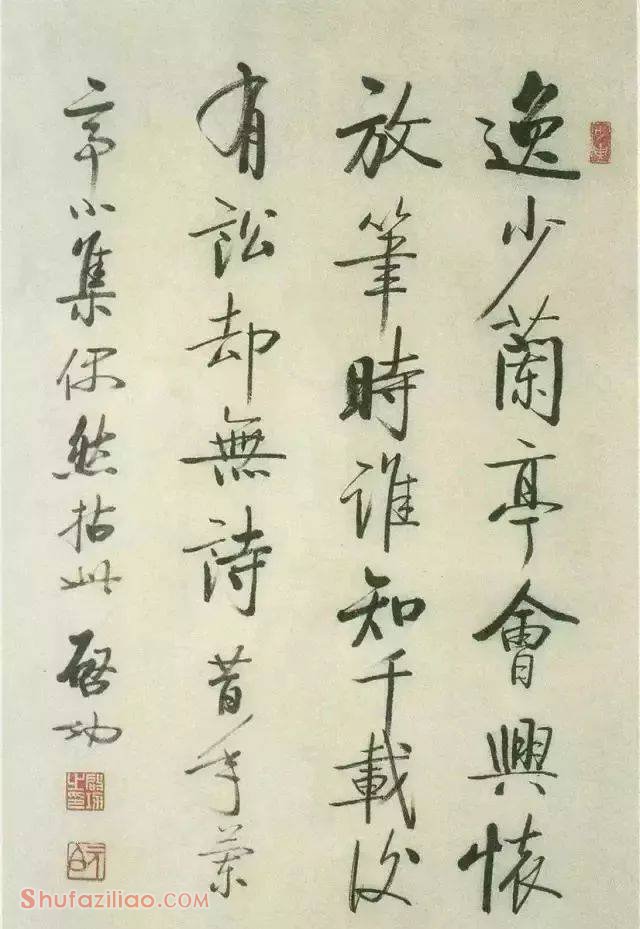 逸少蘭亭會興懷
放筆時誰知千載後
有訟却無詩 昔年蘭
亭小集偶然拈此 啓功
啟功之印
元白
Shufaziliao.COM